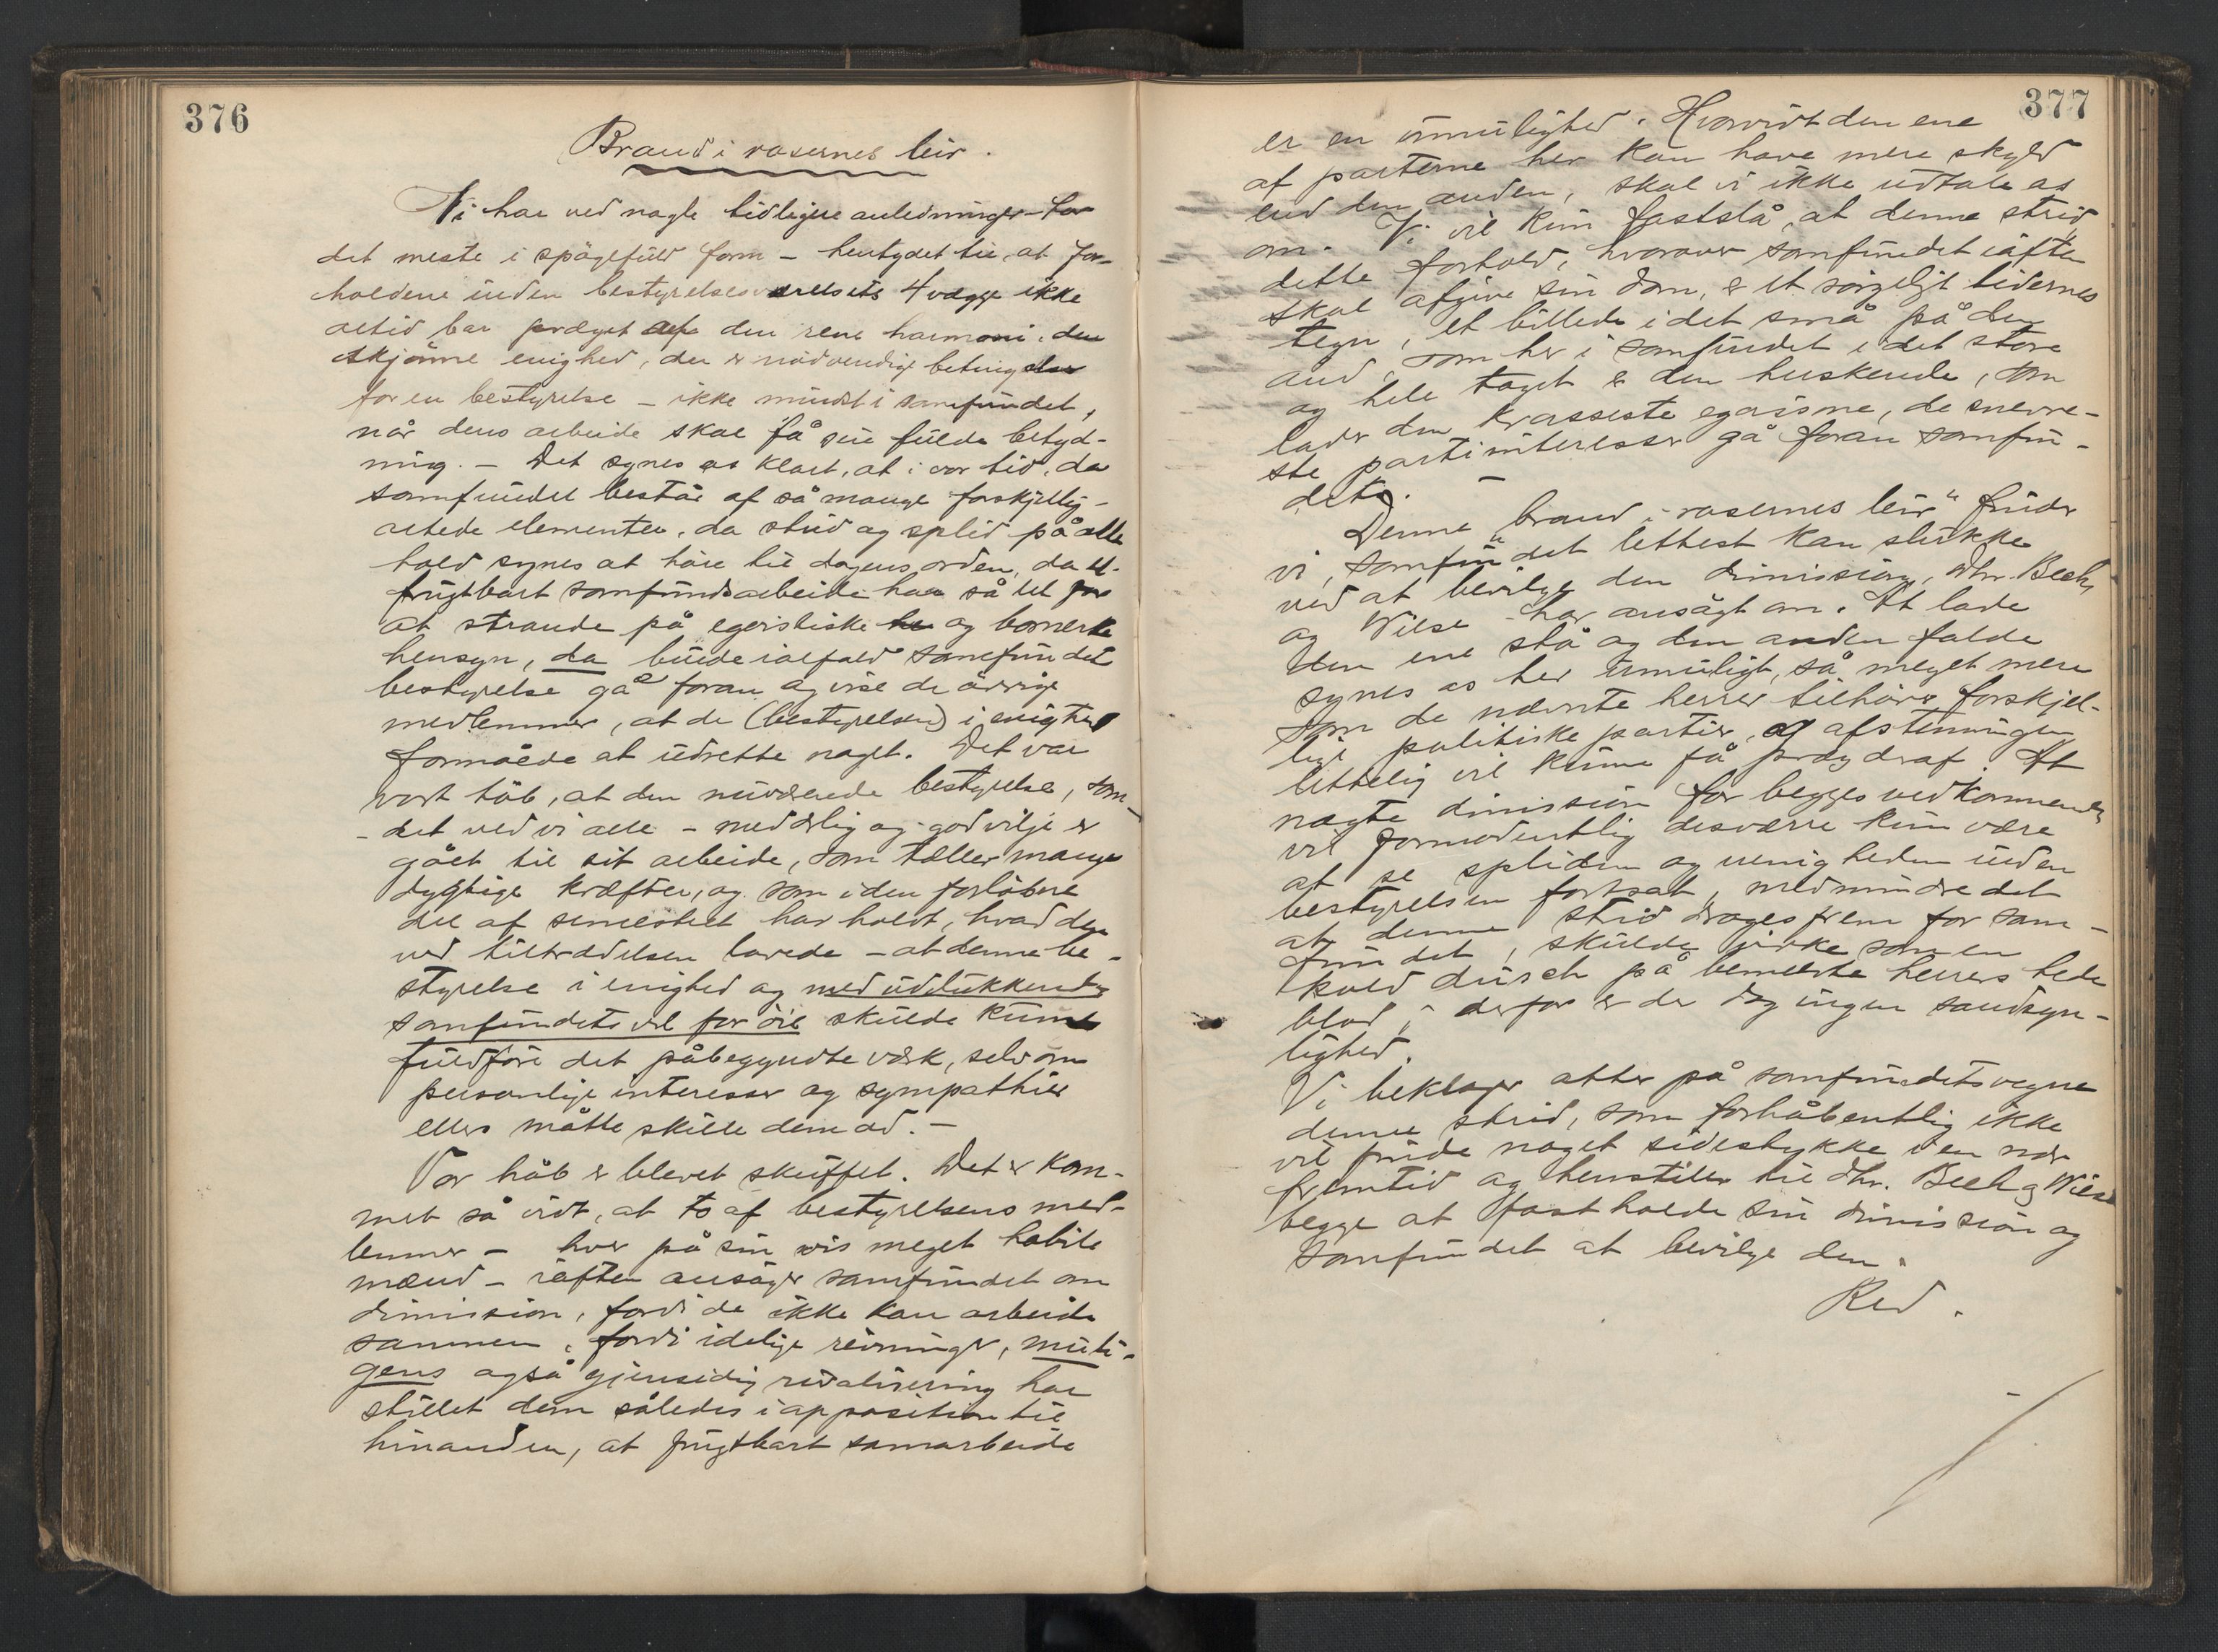 376
Brand i rosernes leir.
Vi har ved nogle tidligere anledninger – for
det meste i spøgefuld form – hentydet til, at for-
holdene inden bestyrelsesværelsets 4 vægge ikke
altid bar præget af den rene harmoni, den
skjønne enighed, der er nødvendige betingelser
for en bestyrelse – ikke mindst i samfundet,
når dens arbeide skal få sin fulde betyd-
ning. – Det synes os klart, at i vor tid, da
samfundet består af så mange forskjellig-
artede elementer, da strid og splid på alle
hold synes at høre til dagens orden, da et
frugtbart samfundsarbeide har så let for
at strande på egoistiske og bornerte
hensyn, da burde ialfald samfundets
bestyrelse gå foran og vise de øvrige
medlemmer, at de (bestyrelsen) i enighed
formåede at udrette noget. Det var
vort håb, at den nuværende bestyrelse, som
– det ved vi alle – med ærlig og god vilje er
gået til sit arbeide, som tæller mange
dygtige kræfter, og som i den forløbne
del af semestret har holdt, hvad den
ved tiltrædelsen lovede – at denne be-
styrelse i enighed og med udelukkende
samfundets vel for øie skulde kunne
fuldføre det påbegyndte værk, selv om
personlige interesser og sympathier
ellers måtte skille dem ad. –
Vor håb er blevet skuffet. Det er kom-
met så vidt, at to af bestyrelsens med-
lemmer – hver på sin vis meget habile
mænd – iaften ansøger samfundet om
dimission, fordi de ikke kan arbeide
sammen, fordi idelige rivninger, muli-
gens også gjensidig rivalisering har
stillet dem således i opposition til
hinanden, at frugtbart samarbeide
377
er en umulighed. Hvorvidt den ene
af parterne her kan have mere skyld
end den anden, skal vi ikke udtale os
om. Vi vil kun fastslå, at denne strid,
dette forhold, hvorover samfundet iaften
skal afgive sin dom, er et sørgeligt tidernes
tegn, et billede i det små på den
ånd, som her i samfundet i det store
og hele taget er den herskende, som
lader den krasseste egoisme, de snevre-
ste partiinteresser gå foran samfun-
dets. –
Denne „brand i rosernes leir" finder
vi, samfundet lettest kan slukke
ved at bevilge den dimission, dhr. Bech
og Wilse har ansøgt om. At lade
den ene stå og den anden falde
synes os her umuligt, så meget mere
som de nævnte herrer tilhører forskjel-
lige politiske partier, og afstemningen
lettelig vil kunne få præg deraf. At
nægte dimission for begges vedkommende
vil formodentlig desværre kun være
at se spliden og uenigheden inden
bestyrelsen fortsat, medmindre det
at denne strid drages frem for sam-
fundet, skulde virke som en
kold dusch på bemeldte herrers hede
blod, – derfor er der dog ingen sandsyn-
lighed.
Vi beklager atter på samfundets vegne
denne strid, som forhåbentlig ikke
vil finde noget sidestykke i en nær
fremtid og henstiller til dhr. Bech og Wilse
begge at fastholde sin dimission og
samfundet at bevilge den.
Red.